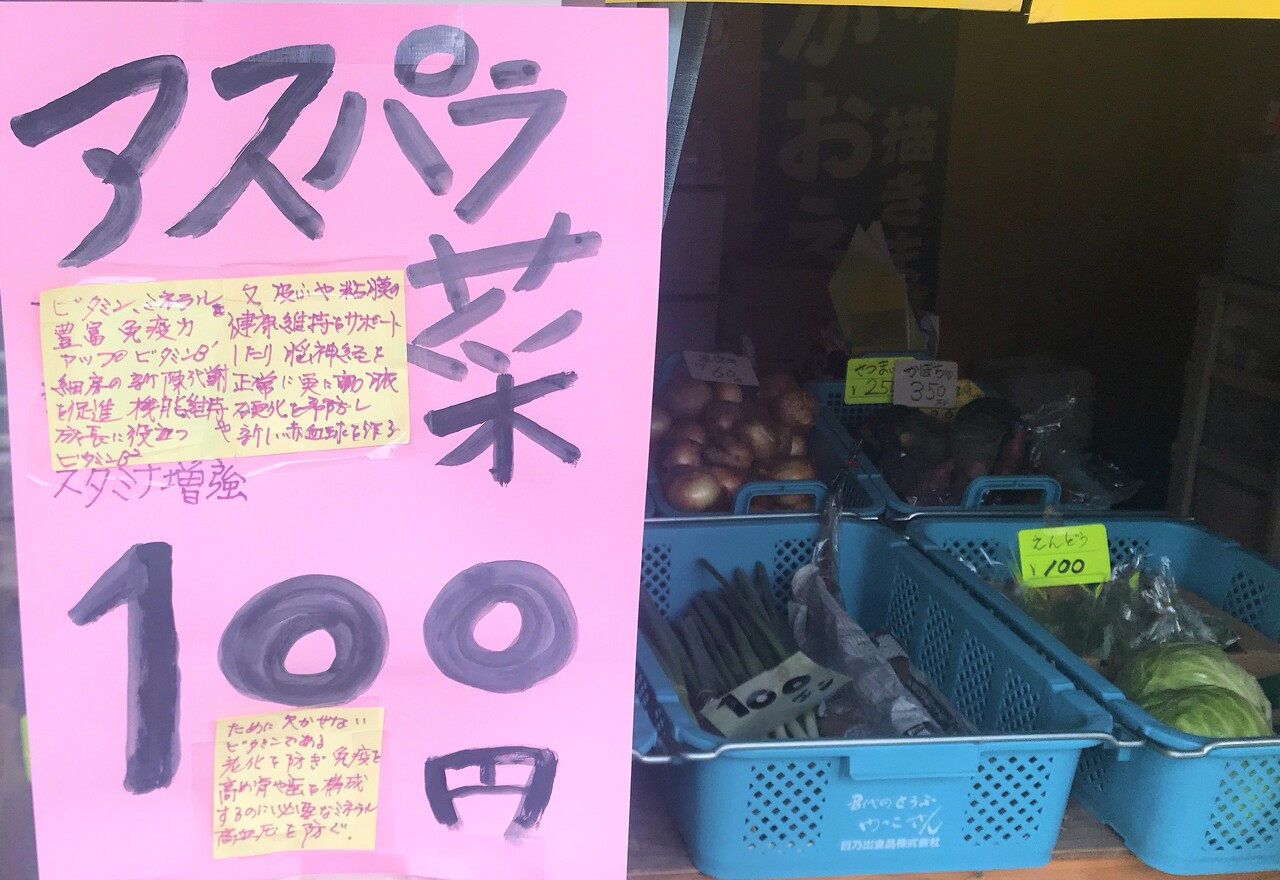 アスパラ
菜
ビタミン、ミネラル
豊富 免疫力を
アップ ビタミンB¹
細胞の新陳代謝
を促進 機能維持や
成長に役立つ
ビタミンB²
又、皮ふや粘膜の
健康維持をサポート
したり 脳神経を
正常に 更に動脈
硬化を予防し
新しい赤血球を作る
スタミナ増強
100
円
ために 欠かせない
ビタミンである
老化を防ぎ 免疫を
高め骨や歯を構成
するのに必要なミネラル
高血圧を防ぐ。
おえ
描きま
60
さつまい
¥25
かぼちゃ
350円
えんどう
¥100
100エン
日乃出食品株式会社